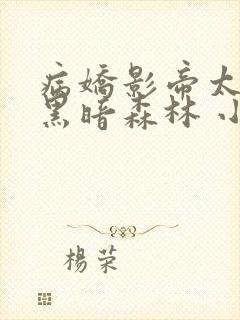 病嬌影帝太
黑暗森林 小
楊荣